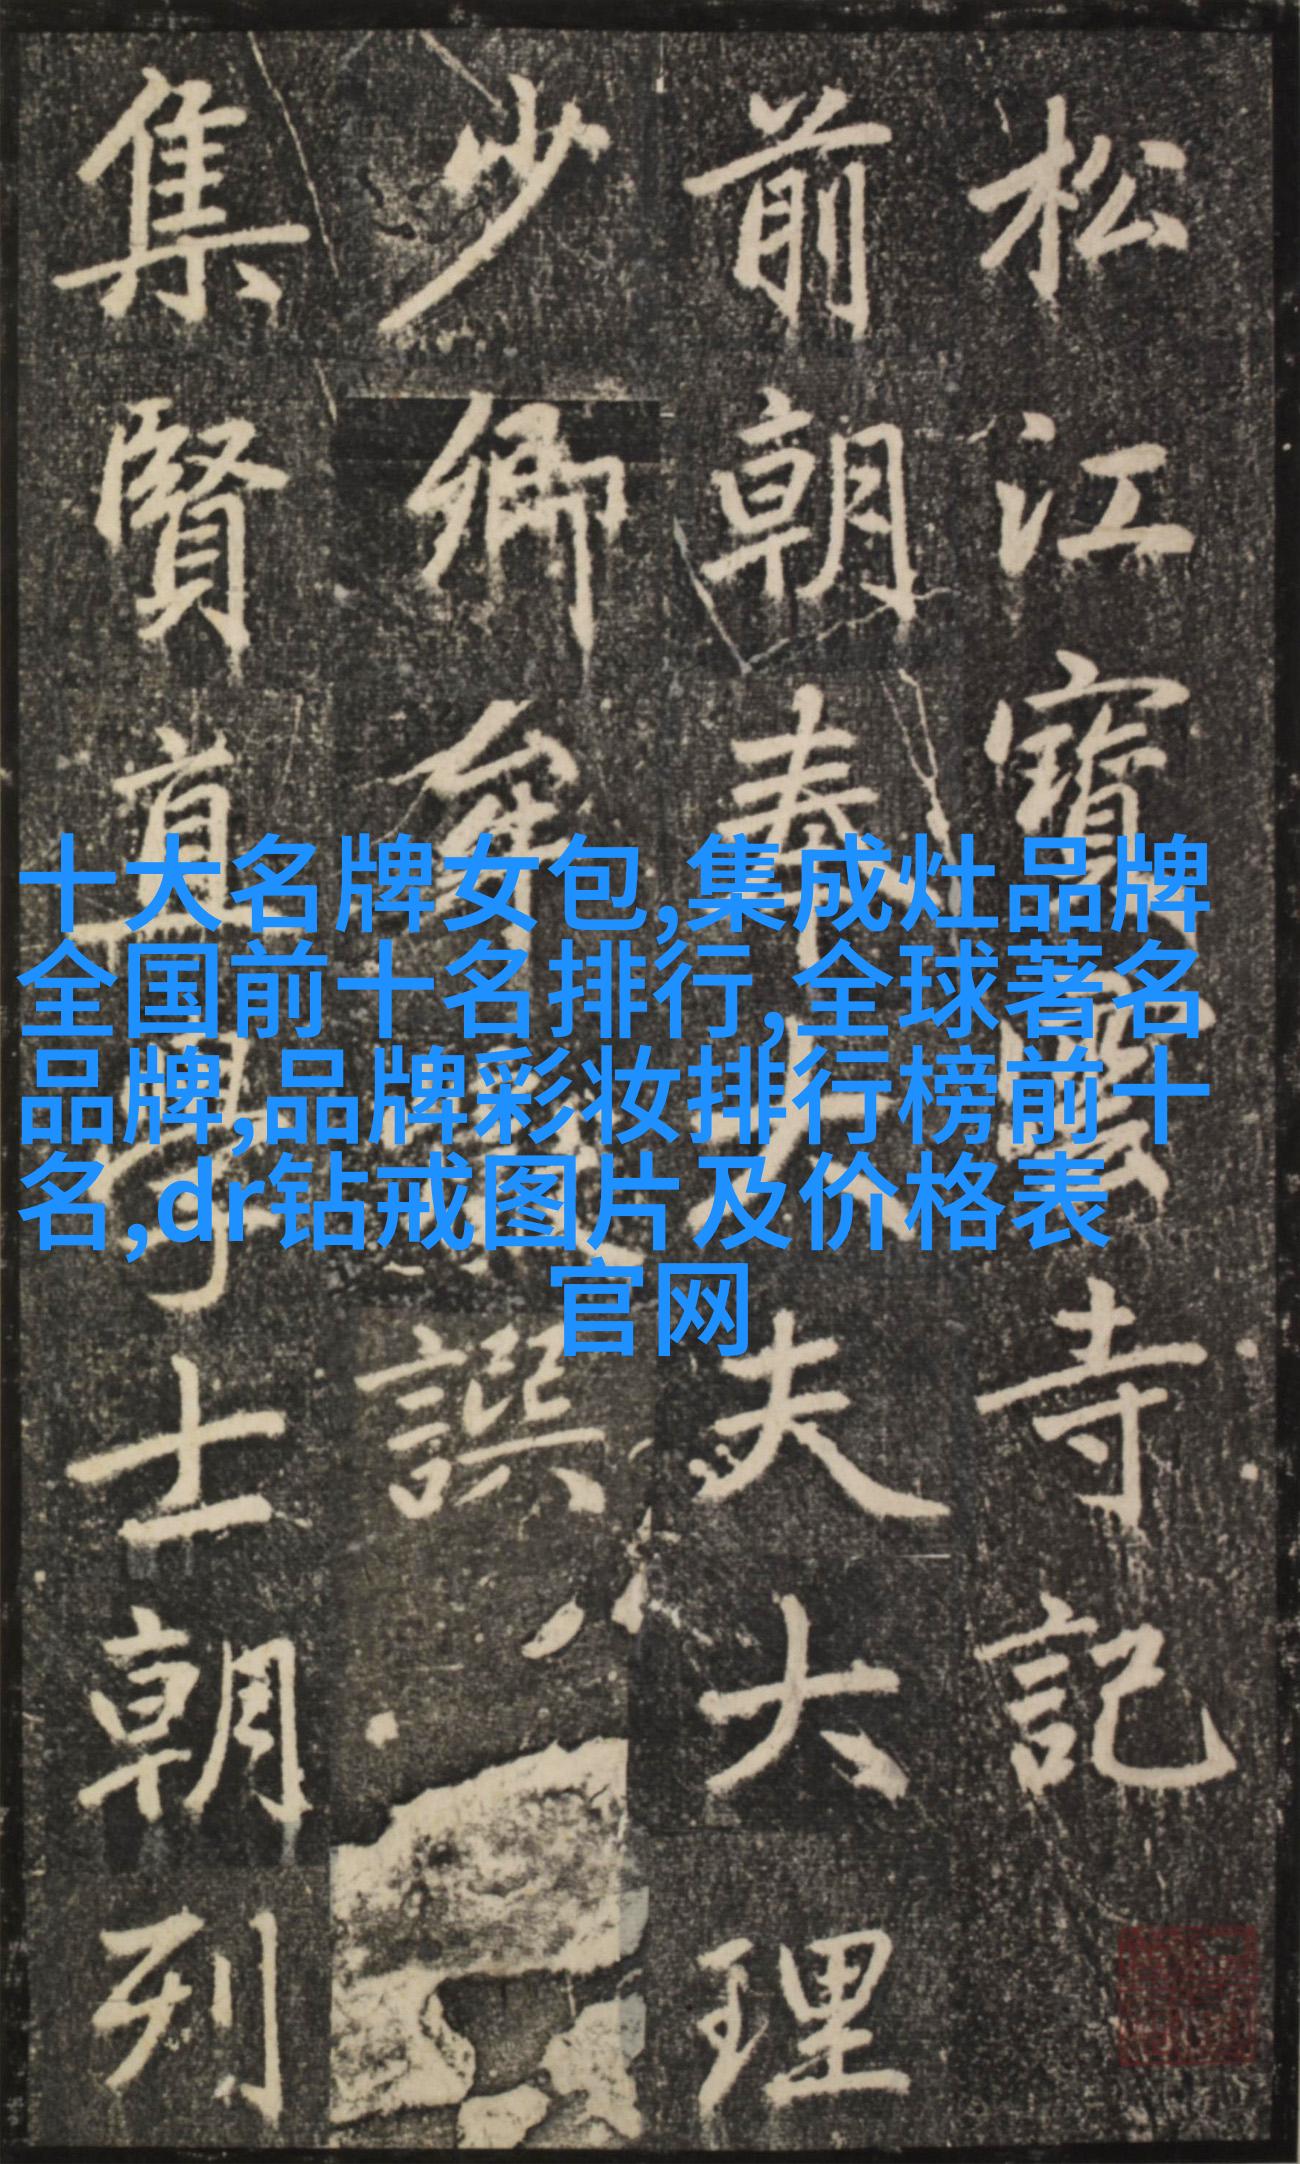 松江寶雲寺記
前朝奉大夫大理
少卿牟巘譔
集賢直學士朝列
十大名牌女包,集成灶品牌
全国前十名排行,全球著名
品牌,品牌彩妆排行榜前十
名,dr钻戒图片及价格表
官网